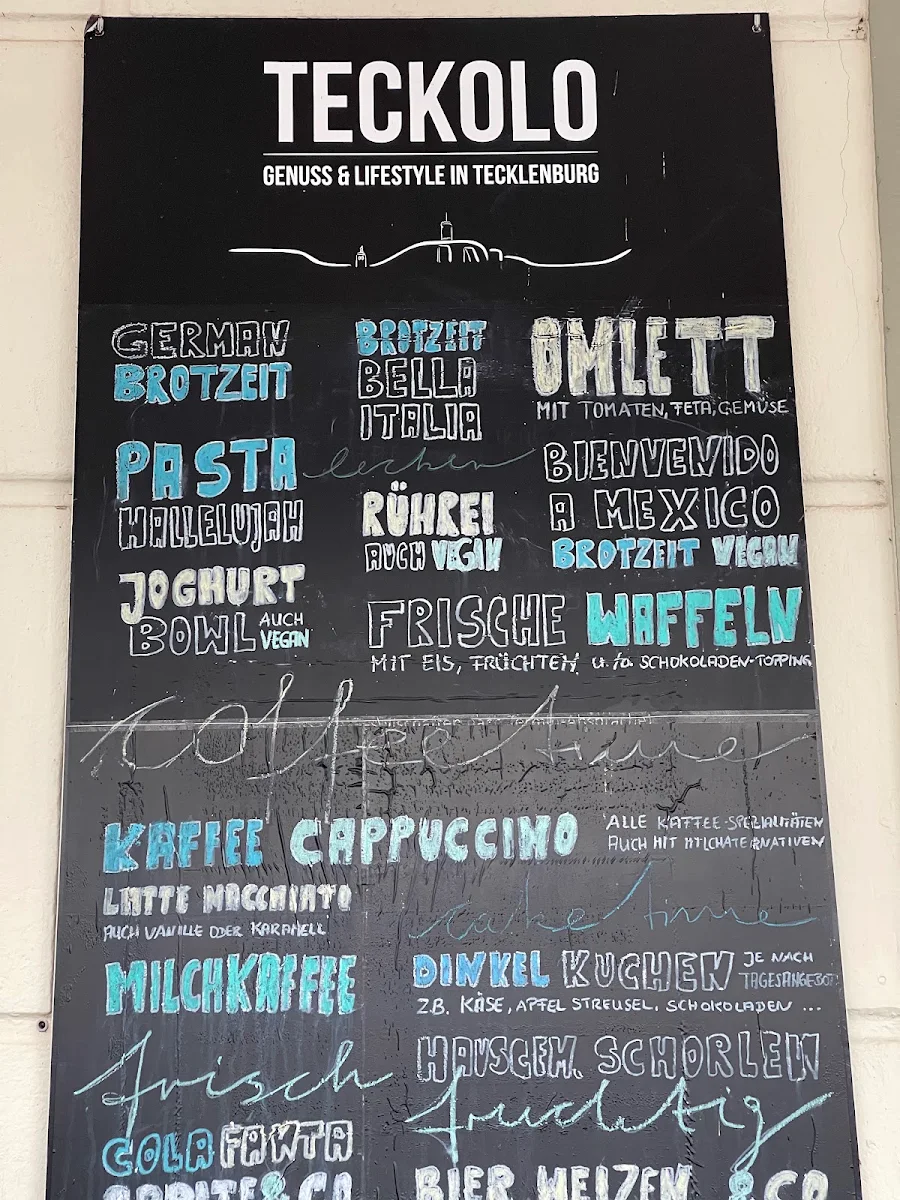 TECKOLO
GENUSS & LIFESTYLE IN TECKLENBURG
GERMAN
BROTZEIT
BROTZEIT
BELLA
ITALIA
OMLETT
MIT TOMATEN, FETA, GEMÜSE
PASTA
HALLELUJAH
lecker
RÜHREI
AUCH VEGAN
BIENVENIDO
A MEXICO
BROTZEIT VEGAN
JOGHURT
BOWL AUCH
VEGAN
FRISCHE WAFFELN
MIT EIS, FRÜCHTEN u. /o. SCHOKOLADEN-TOPPING
coffee time
KAFFEE CAPPUCCINO
ALLE KAFFEE-SPEZIALITÄTEN
AUCH MIT MILCHALTERNATIVEN
LATTE MACCHIATO
AUCH VANILLE ODER KARAMELL
MILCHKAFFEE
cake time
DINKEL KUCHEN JE NACH
TAGESANGEBOT
Z.B. KÄSE, APFEL STREUSEL, SCHOKOLADEN ...
HAUSGEM. SCHORLEN
frisch
fruchtig
COLA FANTA
SPRITE & CO
BIER WEIZEN & CO